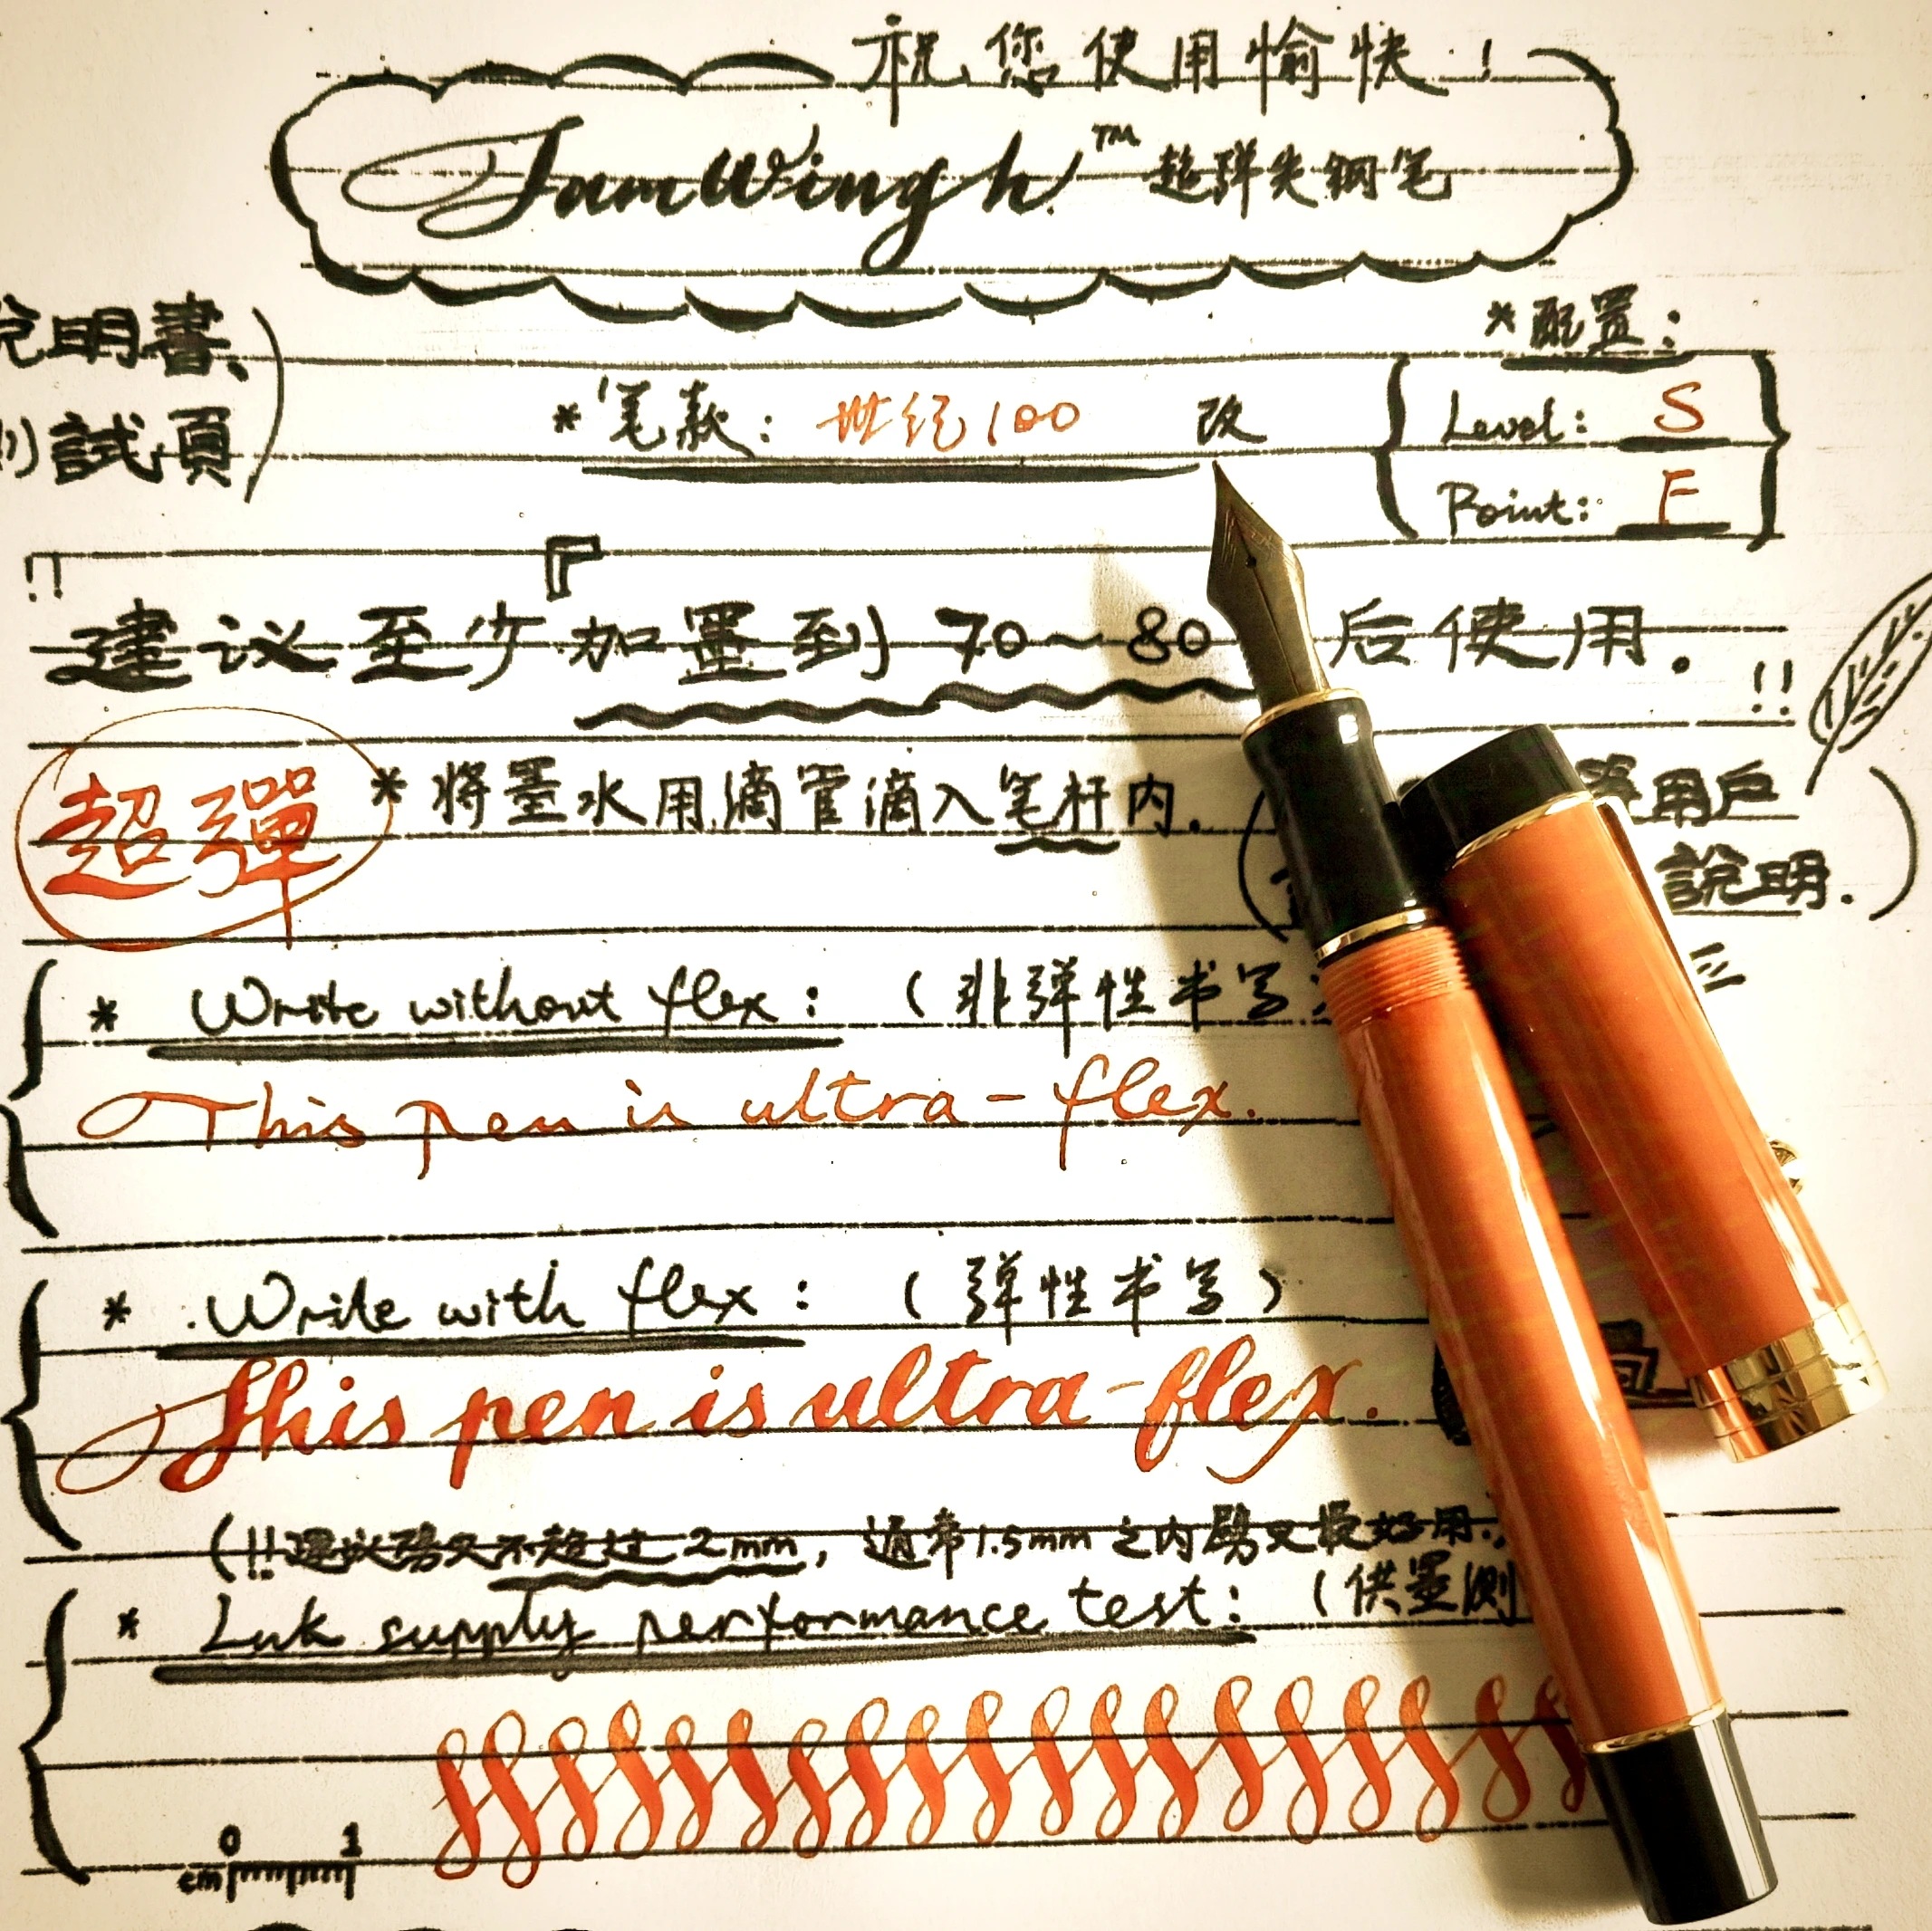 祝您使用愉快!
SamWingh™ 超弹尖钢笔
說明書、
試頁)
*配置:
*笔款:世纪100 改
Level: S
Point: F
!! 建议至少『加墨到70~80 后使用. !!
超彈
*将墨水用滴管滴入笔杆内.
用戶
說明.)
* Write without flex: (非弹性书写)
This pen is ultra-flex.
* Write with flex: (弹性书写)
This pen is ultra-flex.
(!!建议劈叉不超过2mm, 通常1.5mm之内劈叉最好用.
* Ink supply performance test: (供墨测
0 1
cm